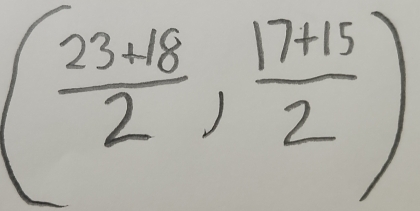 (23+18/2, 17+15/2)